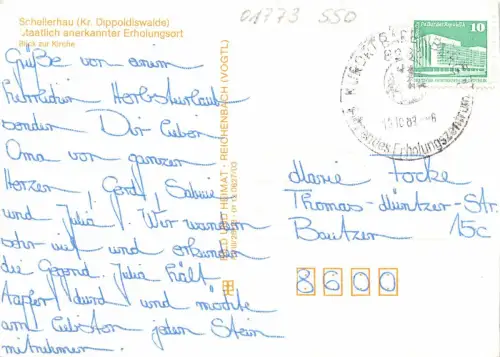 01773 SSO
Schellerhau (Kr. Dippoldiswalde)
Staatlich anerkannter Erholungsort
Blick zur Kirche
Grüße von einem
herrlichen Herbsturlaub
senden Dir lieber
Oma von ganzem
Herzen, Gerd, Sabine
und Julia! Wir wandern
sehr viel und erkunden
die Gegend. Julia hält
tapfer durch und möchte
am liebsten jeden Stein
mitnehmen.
BILD UND HEIMAT · REICHENBACH (VOGTL)
10
KURORT
Erholungszentrum
Marie Focke
Thomas-Müntzer-Str.
15c
Bautzen
8600